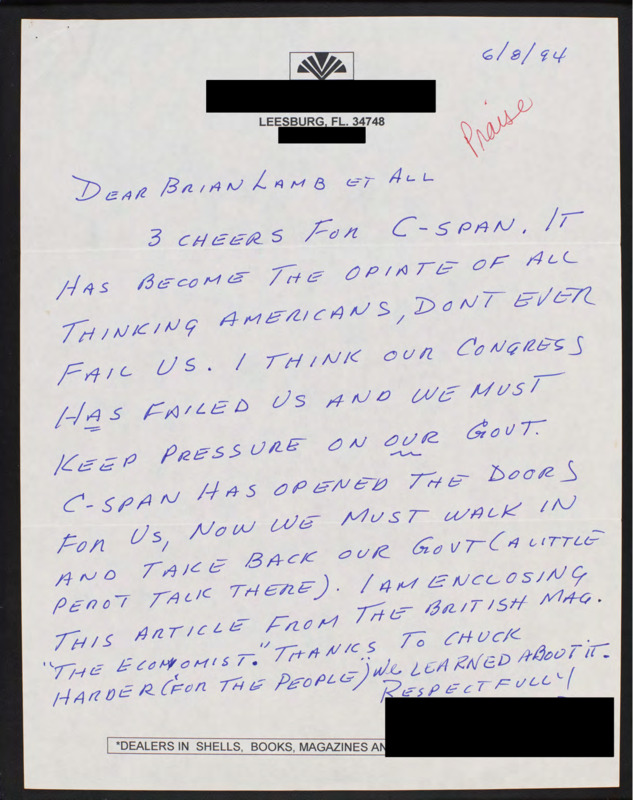 6/8/94
LEESBURG, FL. 34748
Praise
DEAR BRIAN LAMB ET ALL
3 CHEERS FOR C-SPAN. IT
HAS BECOME THE OPIATE OF ALL
THINKING AMERICANS, DONT EVER
FAIL US. I THINK OUR CONGRESS
HAS FAILED US AND WE MUST
KEEP PRESSURE ON OUR GOVT.
C-SPAN HAS OPENED THE DOORS
FOR US, NOW WE MUST WALK IN
AND TAKE BACK OUR GOVT (A LITTLE
PEROT TALK THERE). I AM ENCLOSING
THIS ARTICLE FROM THE BRITISH MAG.
"THE ECONOMIST." THANKS TO CHUCK
HARDER ("FOR THE PEOPLE") WE LEARNED ABOUT IT.
RESPECTFULLY
*DEALERS IN SHELLS, BOOKS, MAGAZINES AN